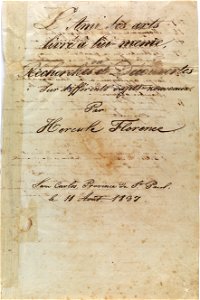 L'Ami des arts
livré à lui même
Recherches et Découvertes
Sur différents sujets nouveaux
Par
Hercule Florence
San Carlos, Province de St. Paul.
le 11 Août 1837